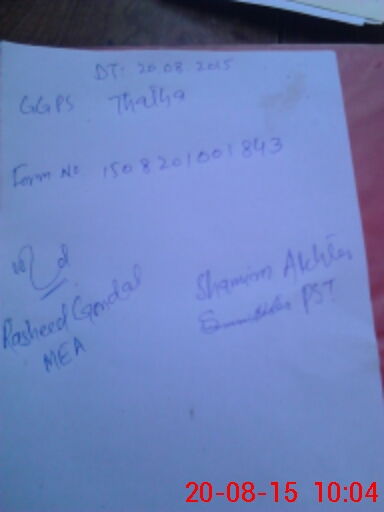 DT: 20.08.2015
GGPS Thatha
Form No. 1508201001843
Rasheed Gondal
MEA
Shamim Akhter
PST
20-08-15 10:04